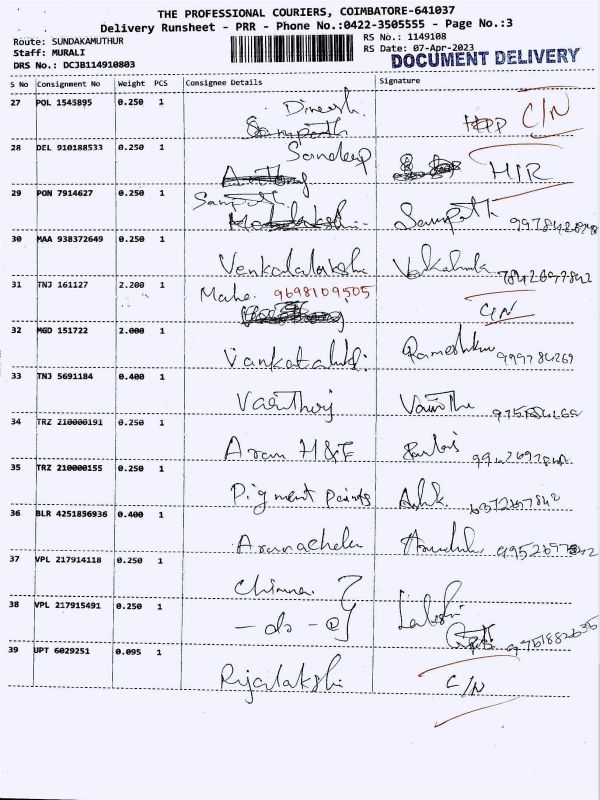 THE PROFESSIONAL COURIERS, COIMBATORE-641037
Delivery Runsheet - PRR - Phone No.:0422-3505555 - Page No.:3
Route: SUNDAKAMUTHUR
Staff: MURALI
DRS No.: DCJB114910803
RS No.: 1149108
RS Date: 07-Apr-2023
DOCUMENT DELIVERY
S No Consignment No Weight PCS Consignee Details Signature
27 POL 1545895 0.250 1 Dinesh. C/N
Sampath
28 DEL 910188533 0.250 1 Sandeep H/R
29 PON 7914627 0.250 1 Sampath Sampath
30 MAA 938372649 0.250 1 Venkatalakshi 7842697842
31 TNJ 161127 2.200 1 Mahe. 9698109505 C/N
32 MGD 151722 2.000 1 Rameshkur 999784269
33 TNJ 5691184 0.400 1
34 TRZ 210000191 0.250 1 Aram H&F
35 TRZ 210000155 0.250 1 Pigment paints Ashk 6372657842
36 BLR 4251856936 0.400 1
37 VPL 217914118 0.250 1 Chinna. ?
38 VPL 217915491 0.250 1 - do - Lakshi
9751882635
39 UPT 6029251 0.095 1 C/N